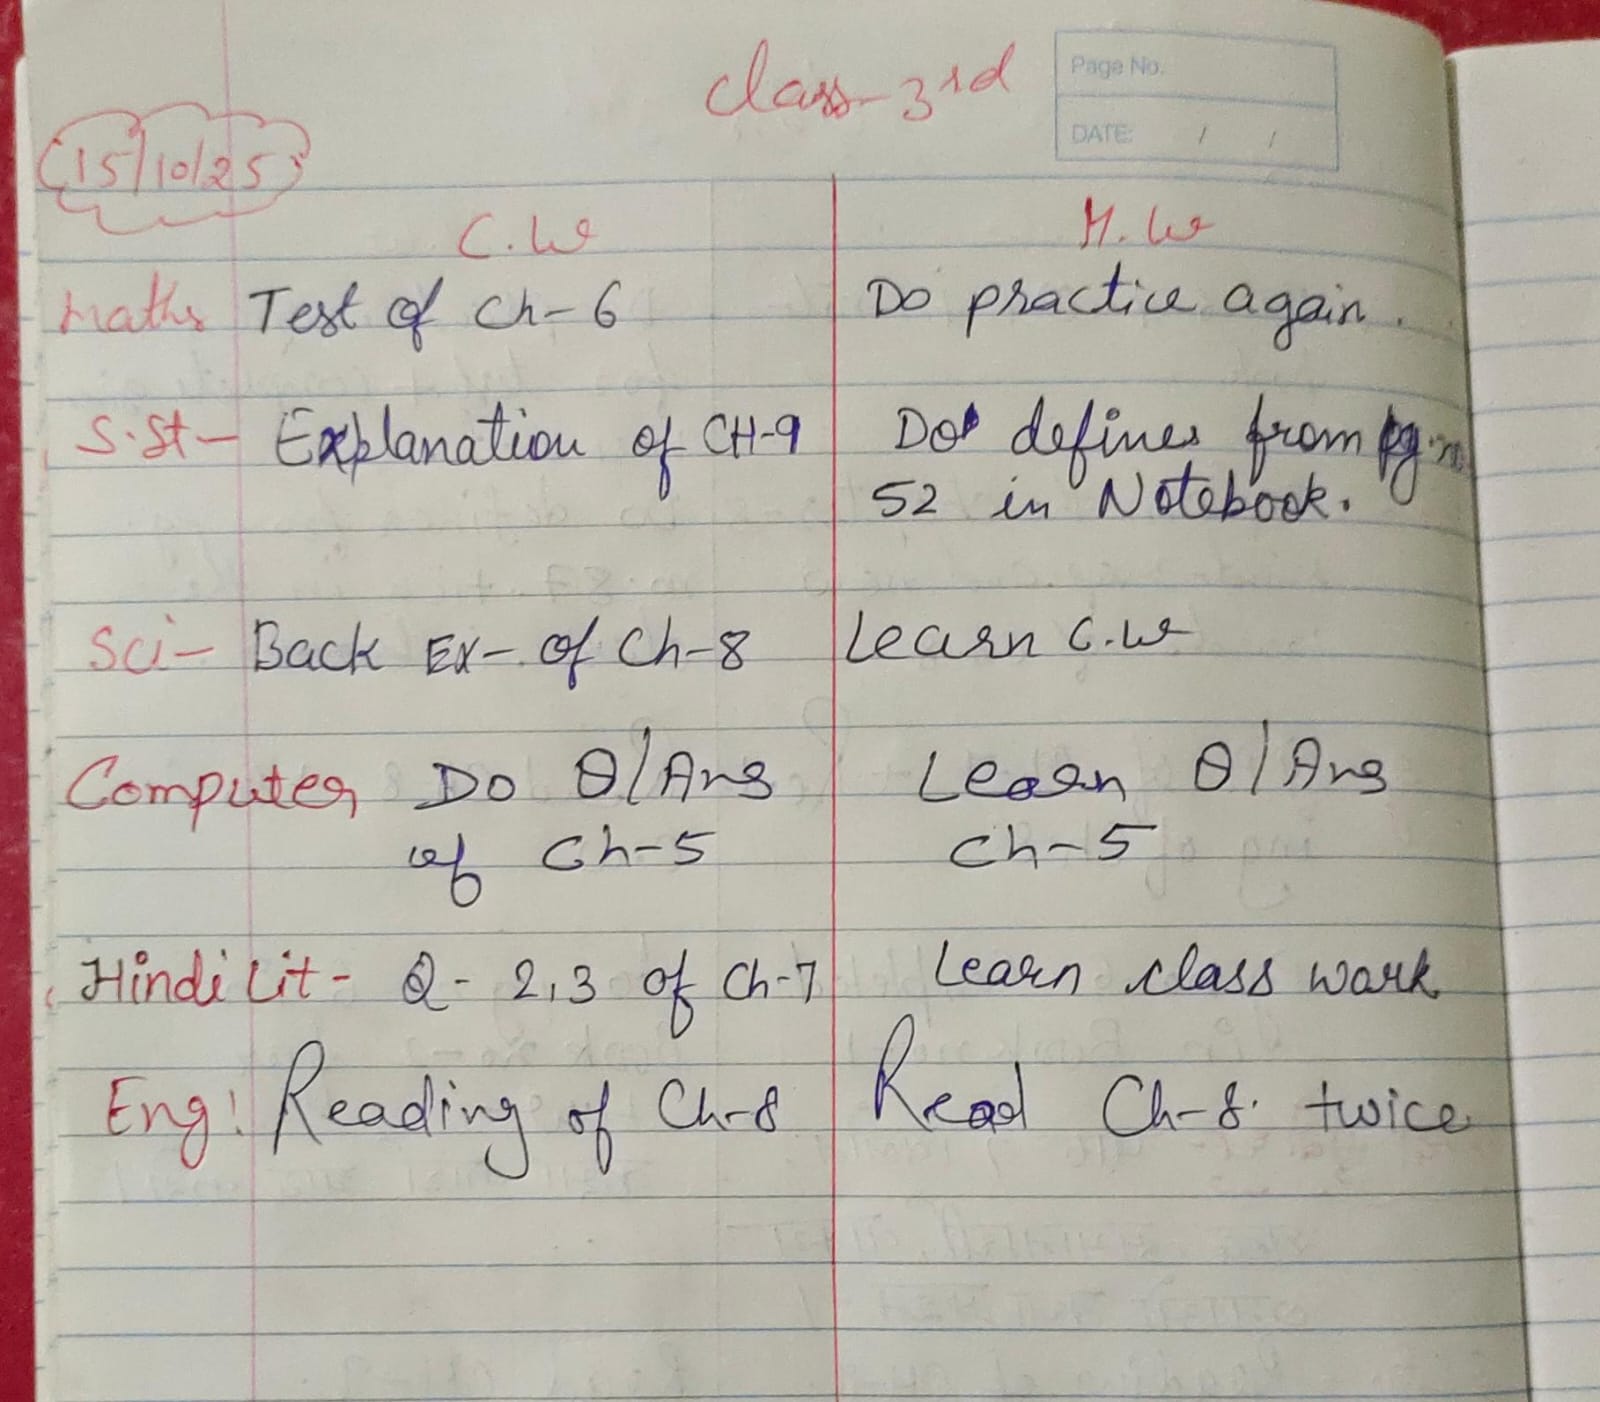 class-3rd
Page No.
DATE: / /
15/10/25
C.W H.W
Maths Test of Ch-6 Do practice again.
S.St- Explanation of CH-9 Do defines from pg.no
52 in Notebook.
Sci- Back Ex- of Ch-8 Learn C.W
Computer Do Q/Ans Learn Q/Ans
of Ch-5 Ch-5
Hindi Lit- Q- 2,3 of Ch-7 Learn class work
Eng: Reading of Ch-8 Read Ch-8. twice